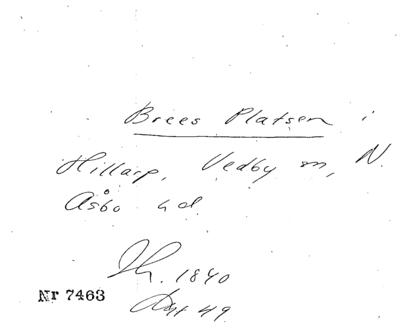 Brees Platsen i
Hillarp, Vedby sn, N.
Åsbo hd.
1840
Nr 7463
49